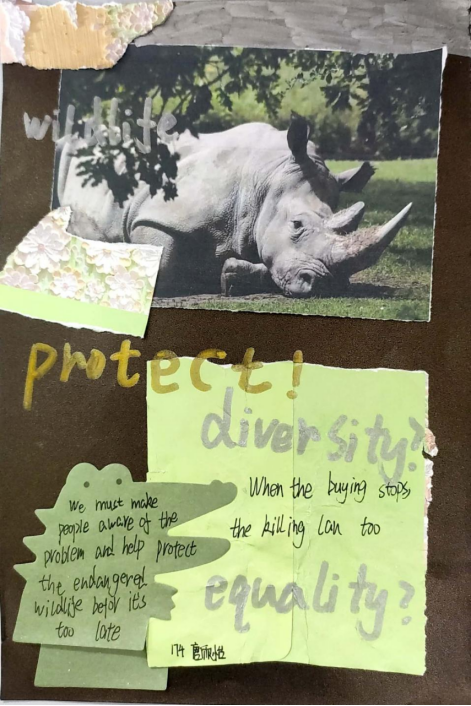 wildlife
protect!
diversity?
When the buying stops,
the killing can too
equality?
We must make
people aware of the
problem and help protect
the endangered
wildlife befor it's
too late
174